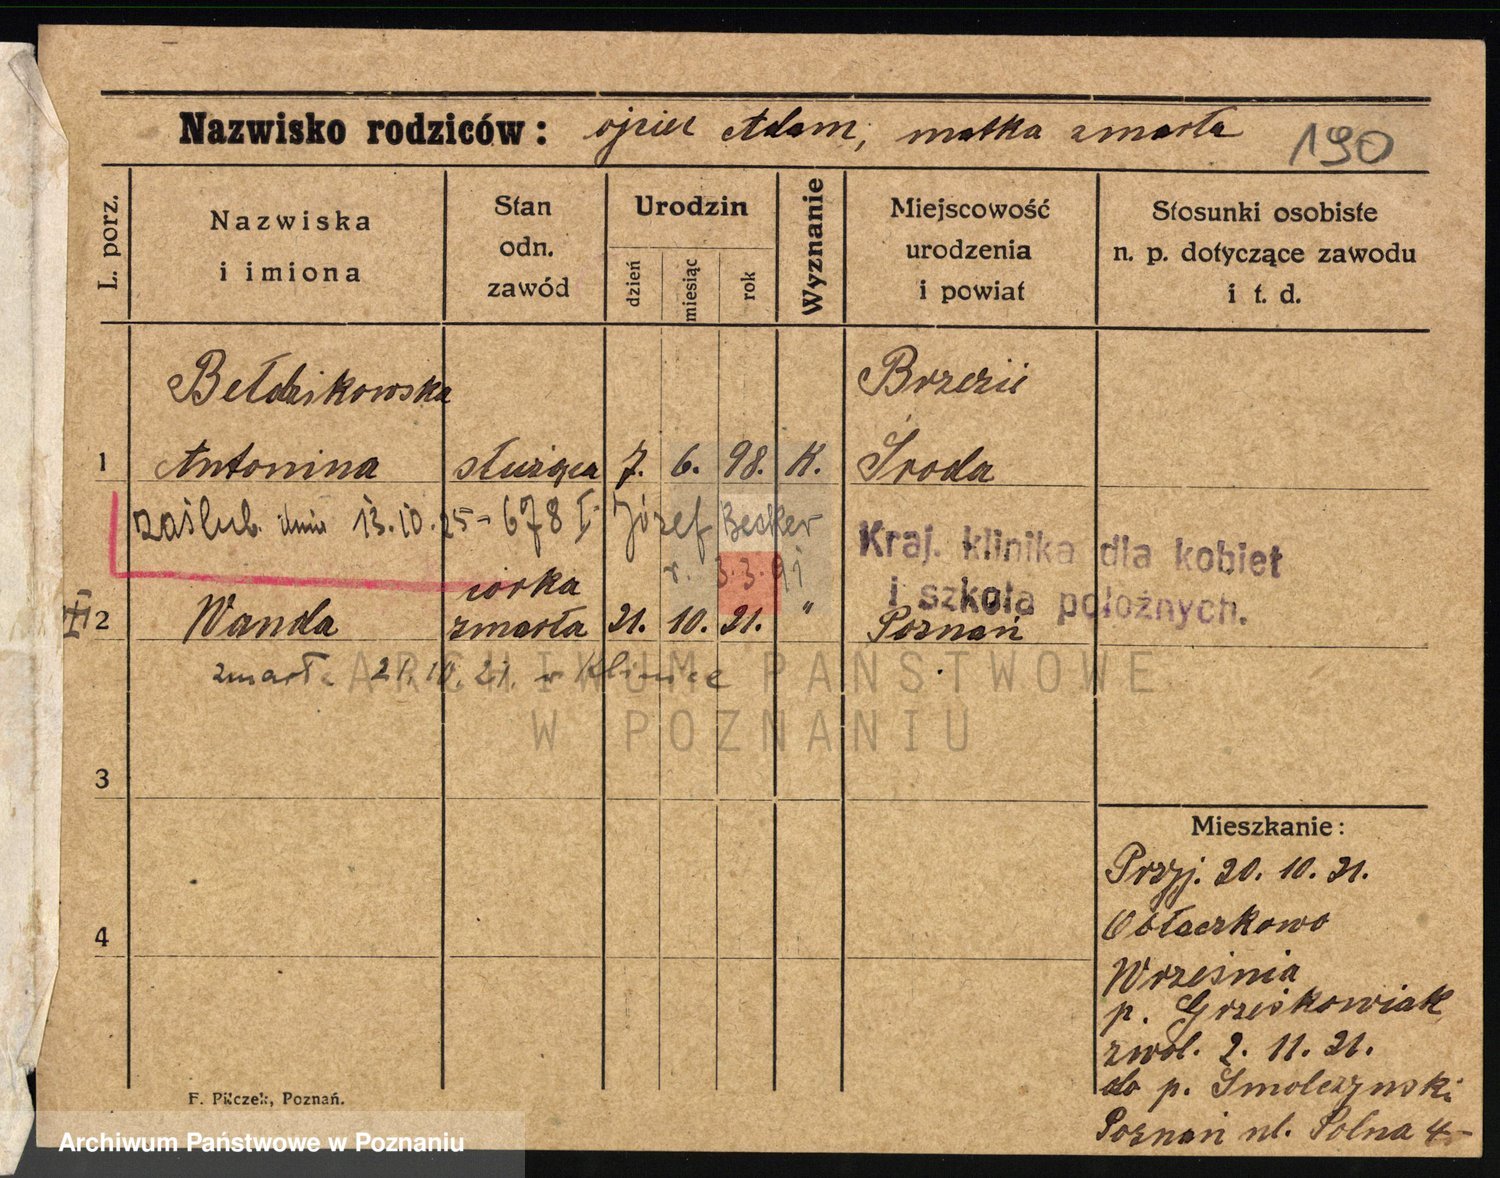 Nazwisko rodziców: ojciec Adam, matka zmarła
190
L. porz.
Nazwiska
i imiona
Stan
odn.
zawód
Urodzin
dzień
miesiąc
rok
Wyznanie
Miejscowość
urodzenia
i powiat
Stosunki osobiste
n. p. dotyczące zawodu
i t. d.
Bełdzikowska Brzezie
1 Antonina służąca 7. 6. 98. K. Środa
zaślub. dnia 13.10.25 - 678 I. Józef Becker
r. 3.3.91
Kraj. klinika dla kobiet
i szkoła położnych.
córka
2 Wanda zmarła 21. 10. 21. " Poznań
zmarła 21.10.21. w Klinice
ARCHIWUM PAŃSTWOWE
W POZNANIU
3
4
Mieszkanie:
Przyj. 20. 10. 21.
Obłaczkowo
Września
p. Grześkowiak
zwol. 2. 11. 21.
do p. Smolczynski
Poznań ul. Polna 4
F. Pilczek, Poznań.
Archiwum Państwowe w Poznaniu